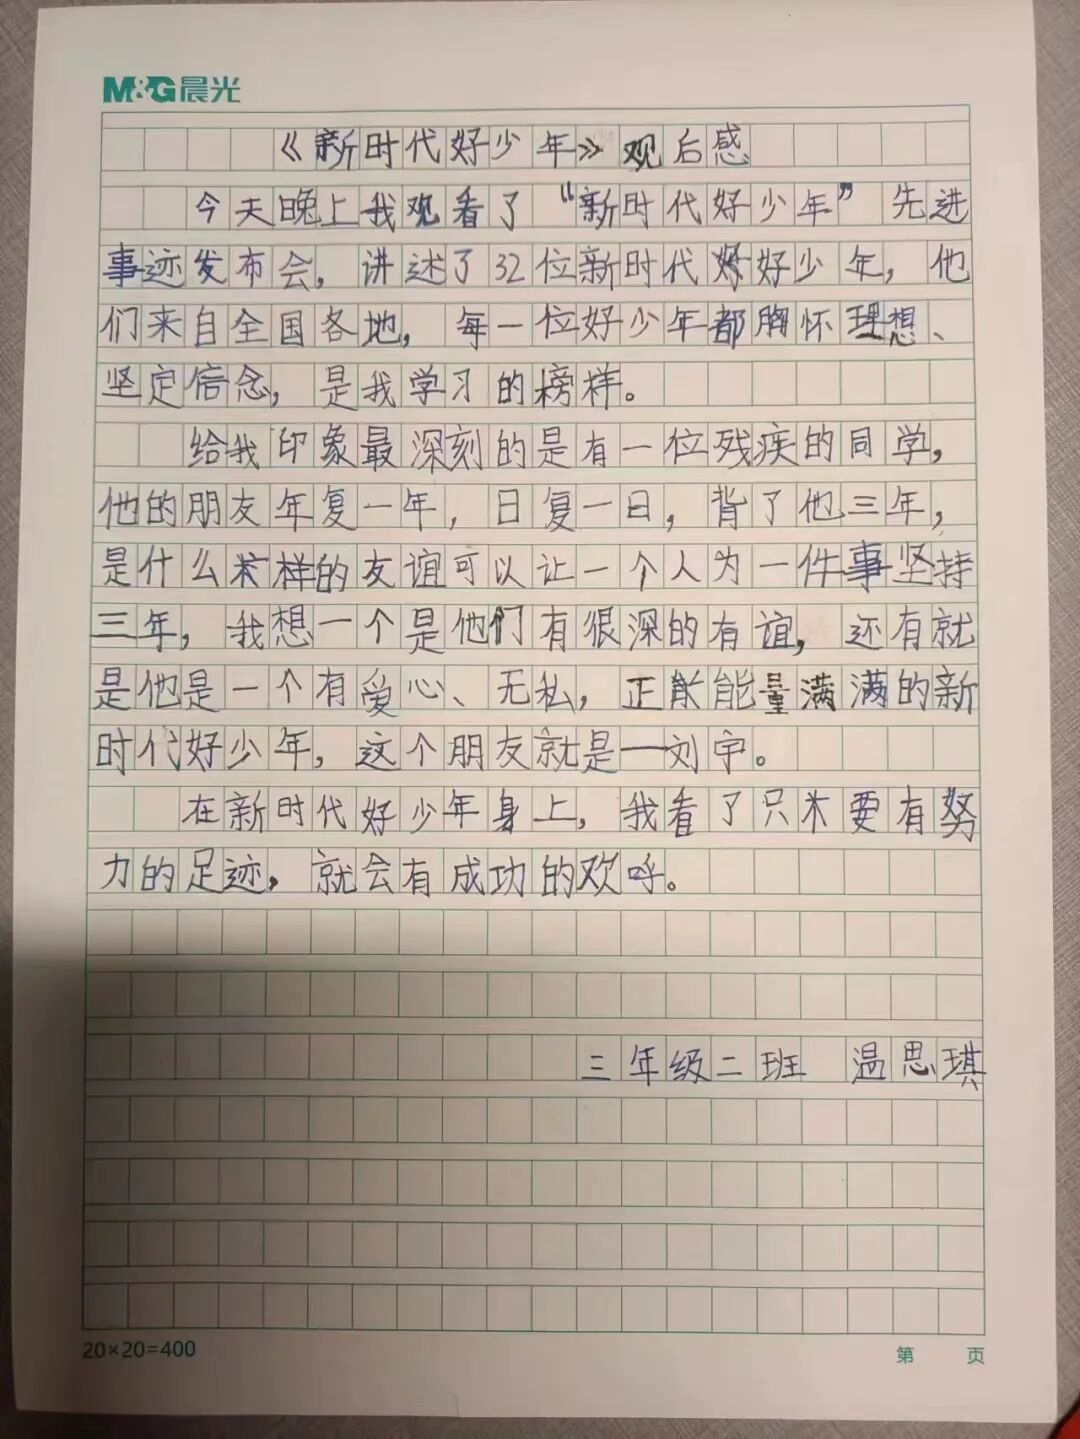 M&G晨光
《新时代好少年》观后感
今天晚上我观看了“新时代好少年”先进
事迹发布会，讲述了32位新时代好少年，他
们来自全国各地，每一位好少年都胸怀理想、
坚定信念，是我学习的榜样。
给我印象最深刻的是有一位残疾的同学，
他的朋友年复一年，日复一日，背了他三年，
是什么样的友谊可以让一个人为一件事坚持
三年，我想一个是他们有很深的有谊，还有就
是他是一个有爱心、无私，正能量满满的新
时代好少年，这个朋友就是一刘宇。
在新时代好少年身上，我看了只要有努
力的足迹，就会有成功的欢呼。
三年级二班 温思琪
20×20=400
第 页